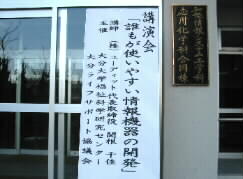 講演会
「誰もが使いやすい情報機器の開発」
講師 (株)ユーディット代表取締役 関根 千佳
主催 大分大学福祉科学研究センター
大分ライフサポート協議会
応用化学科合同棟